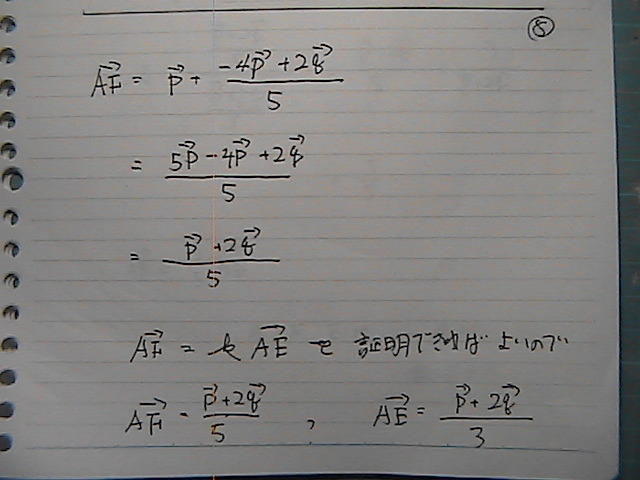 ⑤
AF→ = p→ + (-4p→ + 2q→)/5
= (5p→ - 4p→ + 2q→)/5
= (p→ + 2q→)/5
AF→ = k AE→ を 証明できれば よいので
AF→ = (p→ + 2q→)/5 , AE→ = (p→ + 2q→)/3